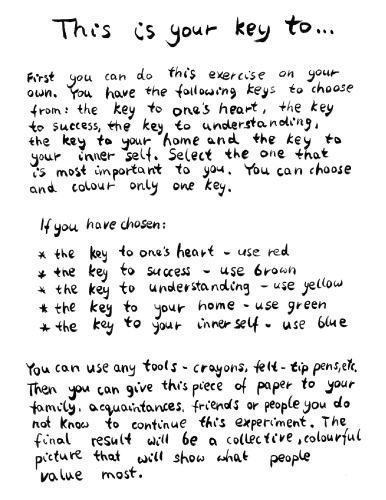 This is your key to...
First you can do this exercise on your
own. You have the following keys to choose
from: the key to one's heart, the key
to success, the key to understanding,
the key to your home and the key to
your inner self. Select the one that
is most important to you. You can choose
and colour only one key.
If you have chosen:
* the key to one's heart - use red
* the key to success - use brown
* the key to understanding - use yellow
* the key to your home - use green
* the key to your inner self - use blue
You can use any tools - crayons, felt-tip pens, etc.
Then you can give this piece of paper to your
family, acquaintances, friends or people you do
not know to continue this experiment. The
final result will be a collective, colourful
picture that will show what people
value most.